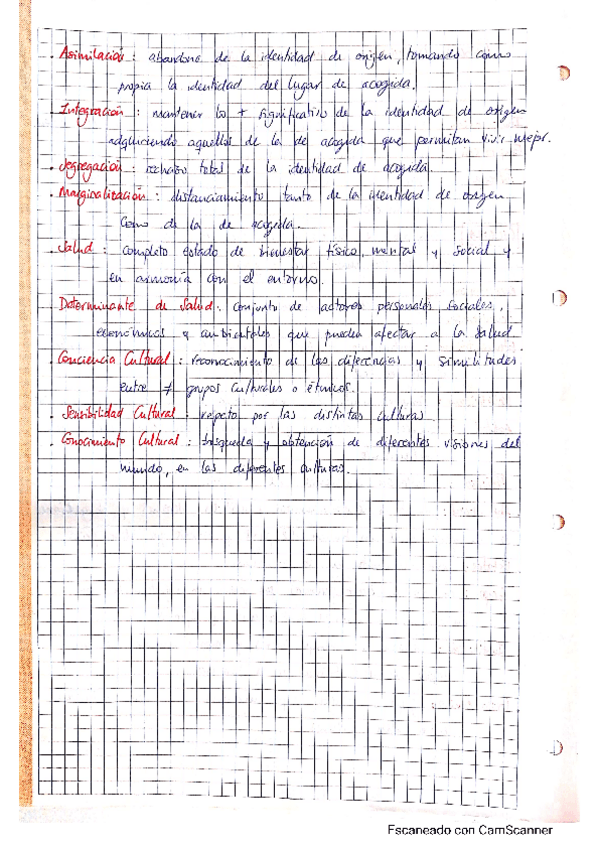 . Asimilación : abandono de la identidad de origen, tomando como
propia la identidad del lugar de acogida.
. Integración : mantener lo + significativo de la identidad de origen
adquiriendo aquellos de la de acogida que permitan vivir mejor.
. Segregación : rechazo total de la identidad de acogida.
. Marginalización : distanciamiento tanto de la identidad de origen
como de la de acogida.
. Salud : completo estado de bienestar físico, mental y social y
en armonía con el entorno.
. Determinante de Salud : conjunto de actores personales, sociales,
económicos y ambientales que pueden afectar a la salud
. Conciencia Cultural : reconocimiento de las diferencias y similitudes
entre ≠ grupos culturales o étnicos.
. Sensibilidad Cultural : respeto por las distintas culturas
. Conocimiento Cultural : búsqueda y obtención de diferentes visiones del
mundo, en las diferentes culturas.
Escaneado con CamScanner